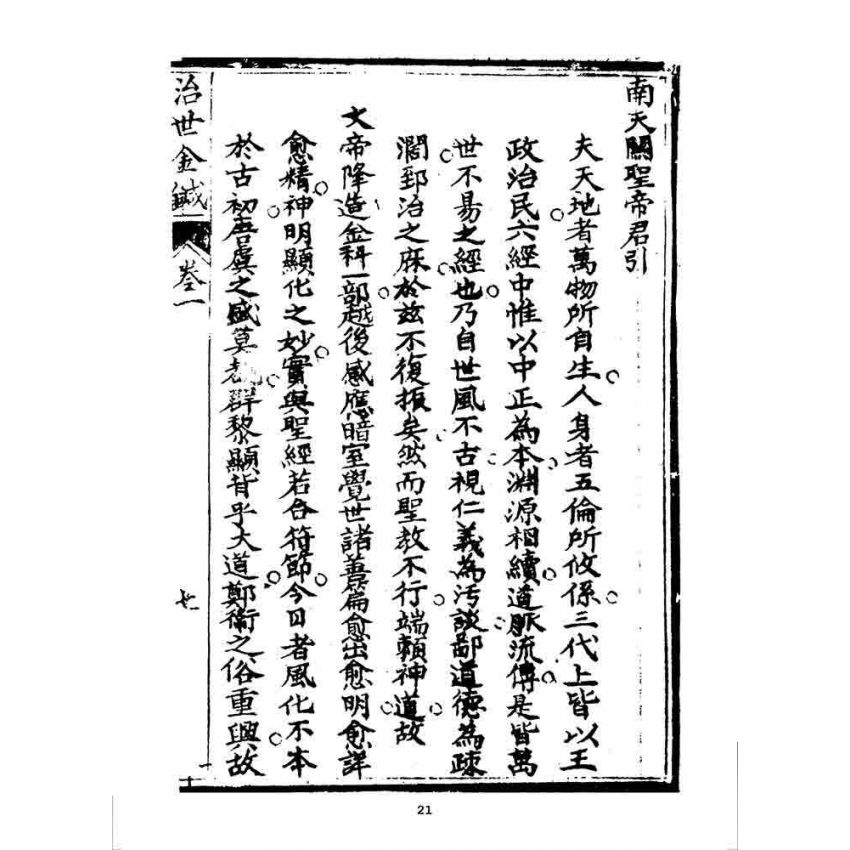 南天關聖帝君引
夫天地者萬物所自生人身者五倫所攸係三代上皆以王
政治民六經中惟以中正為本淵源相續道脈流傳是皆萬
世不易之經也乃自世風不古視仁義為汚談鄙道德為疎
濶郅治之庥於兹不復振矣然而聖教不行端賴神道故
文帝降造金科一部越後感應暗室覺世諸善篇愈出愈明愈詳
愈精神明顯化之妙實與聖經若合符節今日者風化不本
於古初唐虞之盛莫群黎顯背乎大道鄭衛之俗重興故
治世金鍼 卷一
21